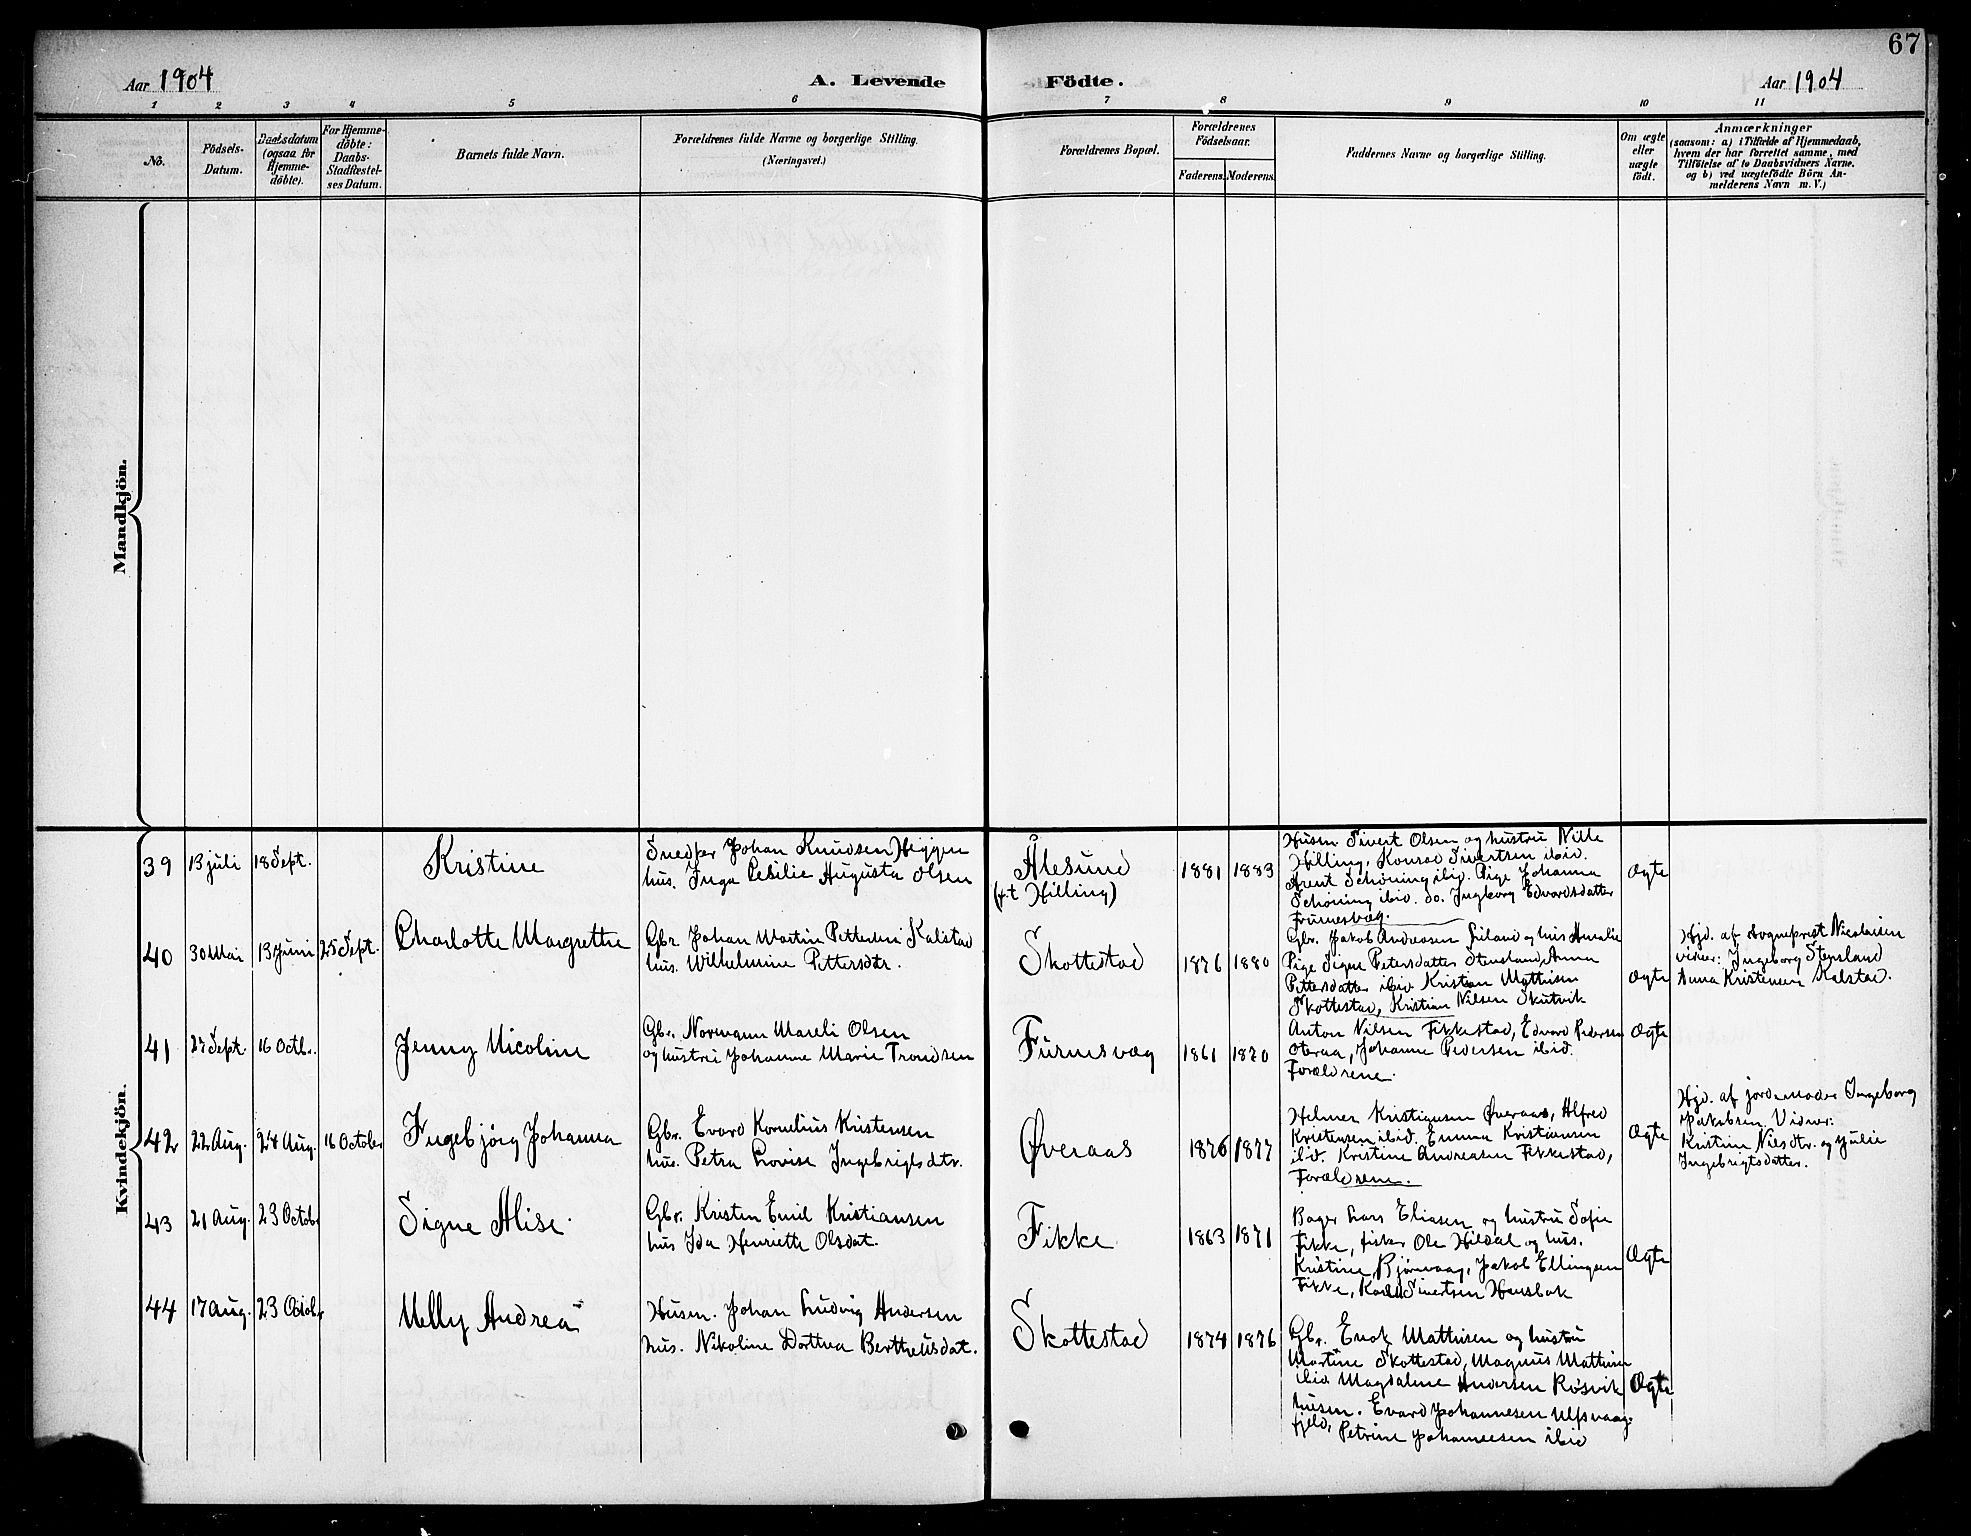 67
Aar 1904 A. Levende Födte. Aar 1904
1 2 3 4 5 6 7 8 9 10 11
No.
Födsels-Datum.
Daabsdatum (ogsaa for Hjemme-döbte).
For Hjemme-döbte: Daabs-Stadfæstel-ses Datum.
Barnets fulde Navn.
Forældrenes fulde Navne og borgerlige Stilling.
(Næringsvei.)
Forældrenes Bopæl.
Forældrenes Födselsaar.
Faderens. Moderens.
Faddernes Navne og borgerlige Stilling.
Om ægte eller uægte födt.
Anmærkninger
(saasom: a) i Tilfælde af Hjemmedaab,
hvem der har forrettet samme, med
Tilföielse af to Daabsvidners Navne.
og b) ved uægtefödte Börn An-
melderens Navn m. V.)
Mandkjön.
Kvindekjön.
39 13 juli 18 Sept.
Kristine
Snedker Johan Knudsen Heggen
hus. Inga Cesilie Augusta Olsen
Ålesund
(f.t Hilling)
1881 1883
Husm Sivert Olsen og hustru Nille
Hilling, Konrad Sivertsen ibid.
Arent Schøning ibid. Pige Johanna
Schøning ibid. do. Ingborg Edvardsdatter
Furnesvæg.
Ægte
40 30 Mai 13 Juni 25 Sept.
Charlotte Margrethe
Gbr. Johan Martin Pettersen Kalstad
hus. Wilhelmine Pettersdtr.
Skottestad
1876 1880
Gbr. Jakob Andreasen Liland og hus Amalie
Pige Signe Petersdatter Stensland, Anna
Pettersdatter ibid Kristian Mathisen
Skottestad, Kristian Nilsen Skutvik
Ægte
Hjd. af Sogneprest Nicolaisen
vidner: Ingeborg Stensland
Anna Kristensen Kalstad.
41 27 Sept. 16 Octb.
Jenny Nicoline
Gbr. Normann Mareli Olsen
og hustru Johanne Marie Trondsen
Furnesvæg
1861 1870
Anton Nilsen Fikkestad, Edvard Pedersen
Johanne Pedersen ibid.
Forældrene.
Ægte
42 22 Aug. 24 Aug. 16 October
Ingebjørg Johanna
Gbr. Evard Kornelius Kristensen
hus. Petra Lovise Ingebrigtsdtr.
Øveraas
1876 1877
Helmer Kristiansen Øveraas, Alfred
Kristensen ibid. Emma Kristiansen
ibid. Kristine Andreasen Fikkestad,
Forældrene.
Ægte
Hjd. af jordemoder Ingeborg
Jakobsen. Vidner:
Kristine Nilsdtr. og Julie
Ingebrigtsdatter.
43 21 Aug. 23 Octobr
Signe Alise.
Gbr. Kristen Emil Kristiansen
hus Ida Henriette Olsdat.
Fikke
1863 1871
Bager Lars Eliasen og hustru Sofie
Fikke, fisker Ole Hildal og hus.
Kristine, Bjørnvaag, Jakob Ellingsen
Fikke, Karl Sivertsen Hansbak
Ægte
44 17 Aug. 23 Octobr
Nelly Andrea
Husm. Johan Ludvig Andersen
hus. Nikoline Dorthea Bertheusdat.
Skottestad
1874 1876
Gbr. Enok Mathisen og hustru
Martine Skottestad, Magnus Mathisen
ibid Magdalene Andersen Røsvik
husm. Evard Johannesen Ulfsvaag-
fjeld, Petrine Johannesen ibid
Ægte